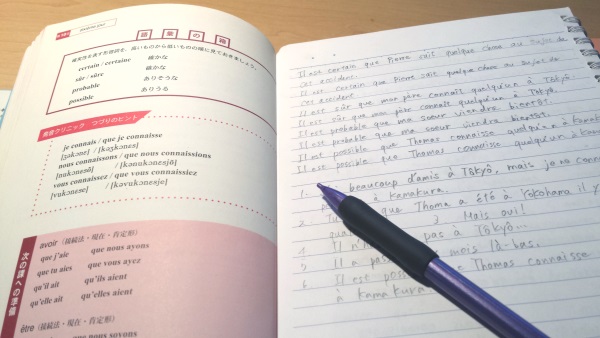 語彙の箱
確実性を表す形容詞を、高いものから低いものの順に見ておきましょう。
certain / certaine 確かな
sûr / sûre 確かな
probable ありそうな
possible ありうる
発音クリニック・つづりのヒント
je connais / que je connaisse
[ʒəkɔnɛ] / [kəʒkɔnɛs]
nous connaissons / que nous connaissions
[nukɔnɛsɔ̃] / [kənukɔnɛsjɔ̃]
vous connaissez / que vous connaissiez
[vukɔnɛse] / [kəvukɔnɛsje]
次の課への準備
avoir（接続法・現在・肯定形）
que j'aie que nous ayons
que tu aies que vous ayez
qu'il ait qu'ils aient
qu'elle ait qu'elles aient
être（接続法・現在・肯定形）
que nous soyons
Il est certain que Pierre sait quelque chose au sujet de
cet accident.
Il est certain que Pierre sait quelque chose au sujet de
cet accident.
Il est sûr que mon père connaît quelqu'un à Tôkyô.
Il est sûr que mon père connaît quelqu'un à Tôkyô.
Il est probable que ma sœur viendra bientôt.
Il est probable que ma sœur viendra bientôt.
Il est possible que Thomas connaisse quelqu'un à
Il est possible que Thomas connaisse quelqu'un à
1. beaucoup d'amis à Tôkyô, mais je
à Kamakura
2. que Thoma a été à Yokohama il y
3 Mais oui!
4 Il n' pas à Tôkyô...
5 Il a pas mois là-bas.
6 Il est Thomas connaisse
à Kamakura